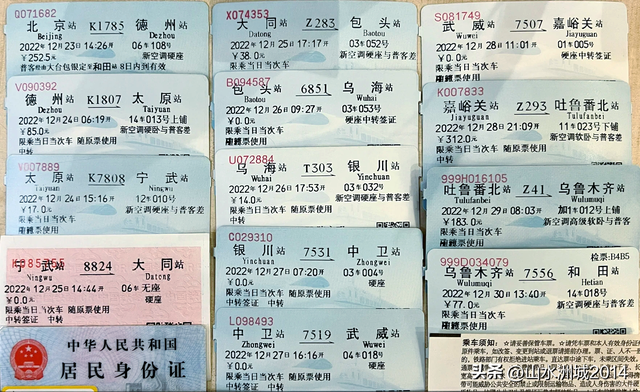 Q071682
北京站 K1785 德州站
Beijing Dezhou
2022年12月23日14:26开 06车108号
¥252.5元 新空调硬座
限乘当日当次车
普客经由大台银定至和田站8日内到有效
V090392
德州站 K1807 太原站
Dezhou Taiyuan
2022年12月24日06:19开 14车013号上铺
¥85.0元 新空调硬卧与普客差
限乘当日当次车 随原票使用
中转
V007889
太原站 K7808 宁武站
Taiyuan Ningwu
2022年12月24日15:16开 12车010号
¥17.0元 新空调硬座与普客差
限乘当日当次车
宁武站 8824 大同站
Ningwu Datong
2022年12月25日14:44开 06车无座
¥0.0元 硬座
限乘当日当次车 随原票使用
中转签证 中转
中华人民共和国
居民身份证
X074353
大同站 Z283 包头站
Datong Baotou
2022年12月25日17:17开 03车052号
¥38.0元 新空调硬座与普客差
限乘当日当次车
B094587
包头站 6851 乌海站
Baotou Wuhai
2022年12月26日09:27开 03车053号
¥0.0元 硬座中转签证
限乘当日当次车 随原票使用
中转
U072884
乌海站 T303 银川站
Wuhai Yinchuan
2022年12月26日17:53开 03车032号
¥14.0元 新空调硬座与普客差
限乘当日当次车 随原票使用
中转
C029310
银川站 7531 中卫站
Yinchuan Zhongwei
2022年12月27日07:20开 003车004号
¥0.0元 硬座
限乘当日当次车 随原票使用
中转签证 中转
L098493
中卫站 7519 武威站
Zhongwei Wuwei
2022年12月27日16:16开 04车018号
¥0.0元 硬座
限乘当日当次车 随原票使用
中转签证 中转
S081749
武威站 7507 嘉峪关站
Wuwei Jiayuguan
2022年12月28日11:01开 01车005号
¥0.0元 硬座中转签证
限乘当日当次车
K007833
嘉峪关站 Z293 吐鲁番北站
Jiayuguan Tulufanbei
2022年12月28日21:09开 11车023号下铺
¥312.0元 新空调软卧与普客差
限乘当日当次车 随原票使用
中转
999H016105
吐鲁番北站 Z41 乌鲁木齐站
Tulufanbei Wulumuqi
2022年12月29日08:03开 加1车012号上铺
¥183.0元 新空调软卧与普客差
限乘当日当次车
999D034079 检票:B4B5
乌鲁木齐站 7556 和田站
Wulumuqi Hetian
2022年12月30日13:40开 14车018号
¥77.0元
限乘当日当次车 随原票使用
中转签证 中转
乘车须知:
头条 @山水洲城2014